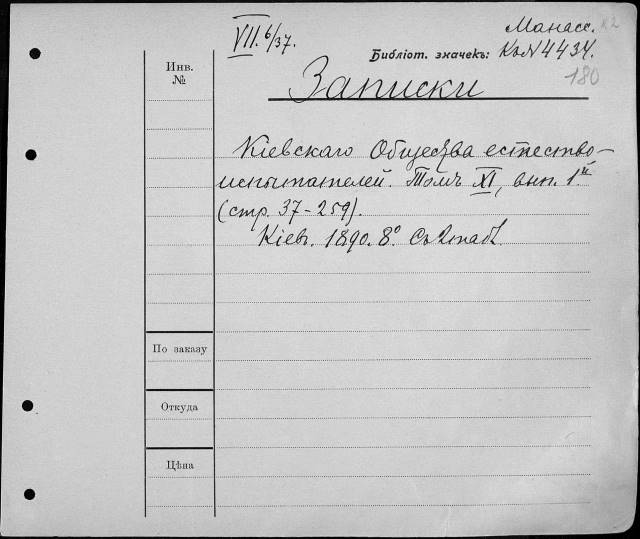 VII. 6/37.
Манасс.
Библіот. значекъ: КъN 4434.
180
Инв.
№
Записки
Кіевскаго Общества естество-
испытателей. Томъ XI, вып. 1й
(стр. 37-259).
Кіевъ. 1890. 8º. Съ 2 таб.
По заказу
Откуда
Цѣна